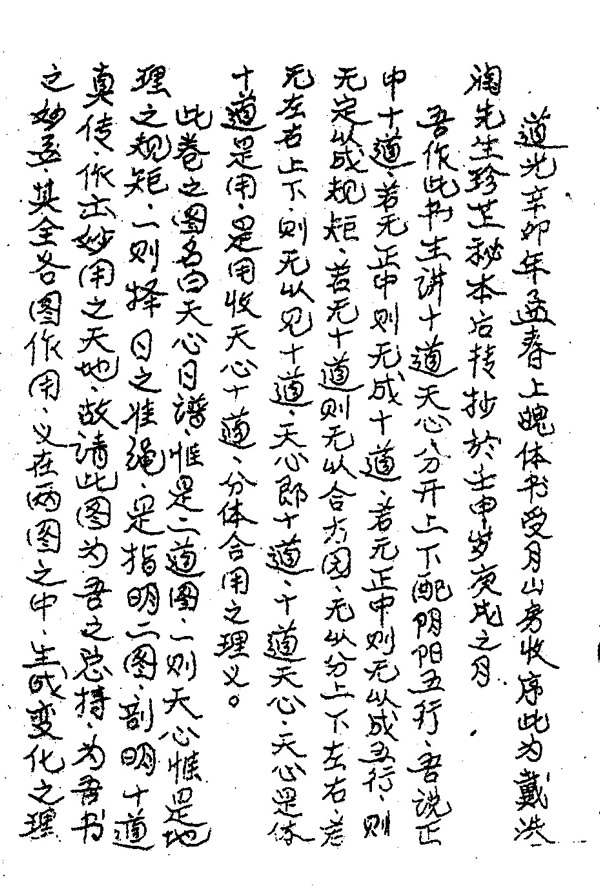 道光辛卯年孟春上魄体书受月山房收序此为戴洪
润先生珍芷秘本后抟抄於壬申岁庚戌之月
吾作此书生讲十道天心分开上下配阴阳五行、吾说正
中十道、若无正中则无成十道、若无正中则无以成五行、则
无定以成规矩、若无十道则无以合方图、无以分上下左右、若
无左右上下、则无以见十道、天心即十道、十道天心、天心是体
十道是用、是用收天心十道、分体合用之理义。
此卷之图名曰天心日谱、惟是二道图、一则天心惟是地
理之规矩、一则择日之准绳、是指明二图、剖明十道
真传、作出妙用之天地、故请此图为吾之总持、为吾书
之妙孟、其全各图作用、义在两图之中、生成变化之理